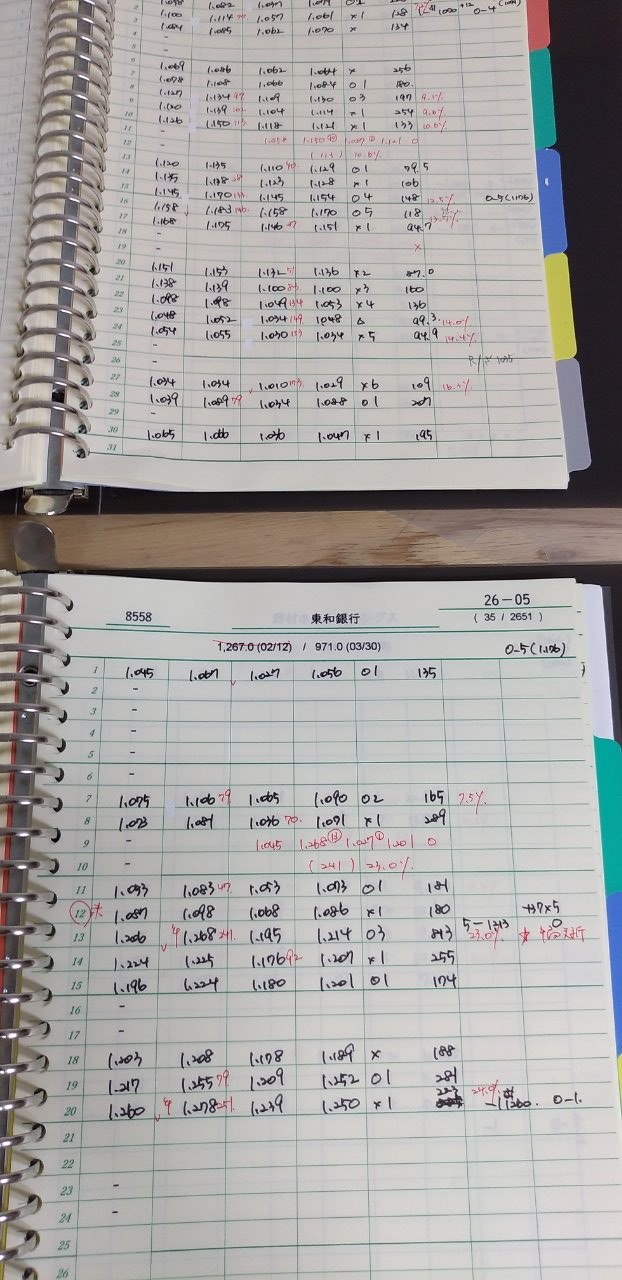 3 1.100 1.114 1.057 1.061 ×1 128
4 1.084 1.085 1.062 1.070 × 134
5 -
6 -
7 1.069 1.086 1.062 1.064 × 256
8 1.078 1.108 1.066 1.084 01 180
9 1.127 1.134 97 1.109 1.130 03 197 9.1%
10 1.120 1.139 102 1.104 1.114 ×1 254 9.6%
11 1.126 1.150 113 1.118 1.121 ×1 133 10.6%
12 - 1.058 1.150 1.037 1.121 0
13 - (113) 10.6%
14 1.120 1.135 1.110 40 1.129 01 79.5
15 1.135 1.138 28 1.123 1.128 ×1 106
16 1.145 1.170 1.145 1.154 04 148 12.5% 0-5 (1.176)
17 1.158 1.183 1.158 1.170 05 118
18 1.168 1.175 1.146 37 1.151 ×1 94.7
19 - ×
20 -
21 1.151 1.153 1.132 51 1.136 ×2 87.0
22 1.138 1.139 1.100 83 1.100 ×3 160
23 1.098 1.098 1.049 134 1.053 ×4 136
24 1.048 1.052 1.034 149 1048 △ 99.3 14.0%
25 1.054 1.055 1.030 153 1.034 ×5 94.9 14.4%
26 -
27 -
28 1.034 1.034 1.010 173 1.029 ×6 109 16.4%
29 1.039 1.089 79 1.034 1.088 01 207
30 -
31 1.065 1.066 1.036 1.047 ×1 195
8558 東和銀行 26-05
( 35 / 2651 )
1,267.0 (02/12) / 971.0 (03/30) 0-5 (1.176)
1 1.045 1.067 1.027 1.056 01 135
2 -
3 -
4 -
5 -
6 -
7 1.075 1.106 79 1.065 1.090 02 165 7.5%
8 1.073 1.081 1.036 70 1.071 ×1 289
9 - 1.045 1.268 ⑬ 1.027 ① 1.201 0
10 - (241) 23.0%
11 1.053 1.083 47 1.053 1.073 01 181
12 1.087 1.098 1.068 1.086 ×1 180 +37×5
13 1.206 1.268 241 1.195 1.214 03 843 5-1213 0 23.0%
14 1.224 1.225 1.176 92 1.207 ×1 255
15 1.196 1.224 1.180 1.201 01 174
16 -
17 -
18 1.203 1.208 1.178 1.189 × 188
19 1.217 1.255 79 1.209 1.252 01 281
20 1.260 1.278 251 1.239 1.250 ×1 223 24.0% -11260. 0-1.
21
22
23 -
24 -
25
26